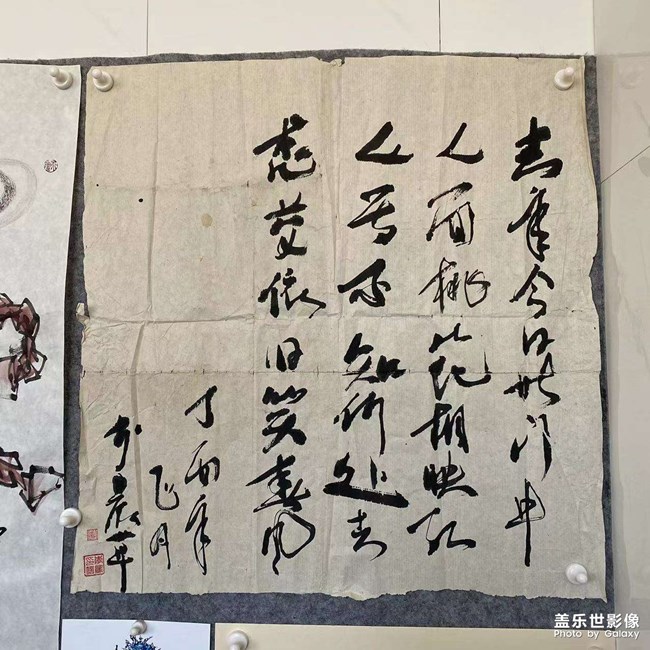 去年今日此门中
人面桃花相映红
人面不知何处去
桃花依旧笑春风
丁酉年
盖乐世影像
Photo by Galaxy